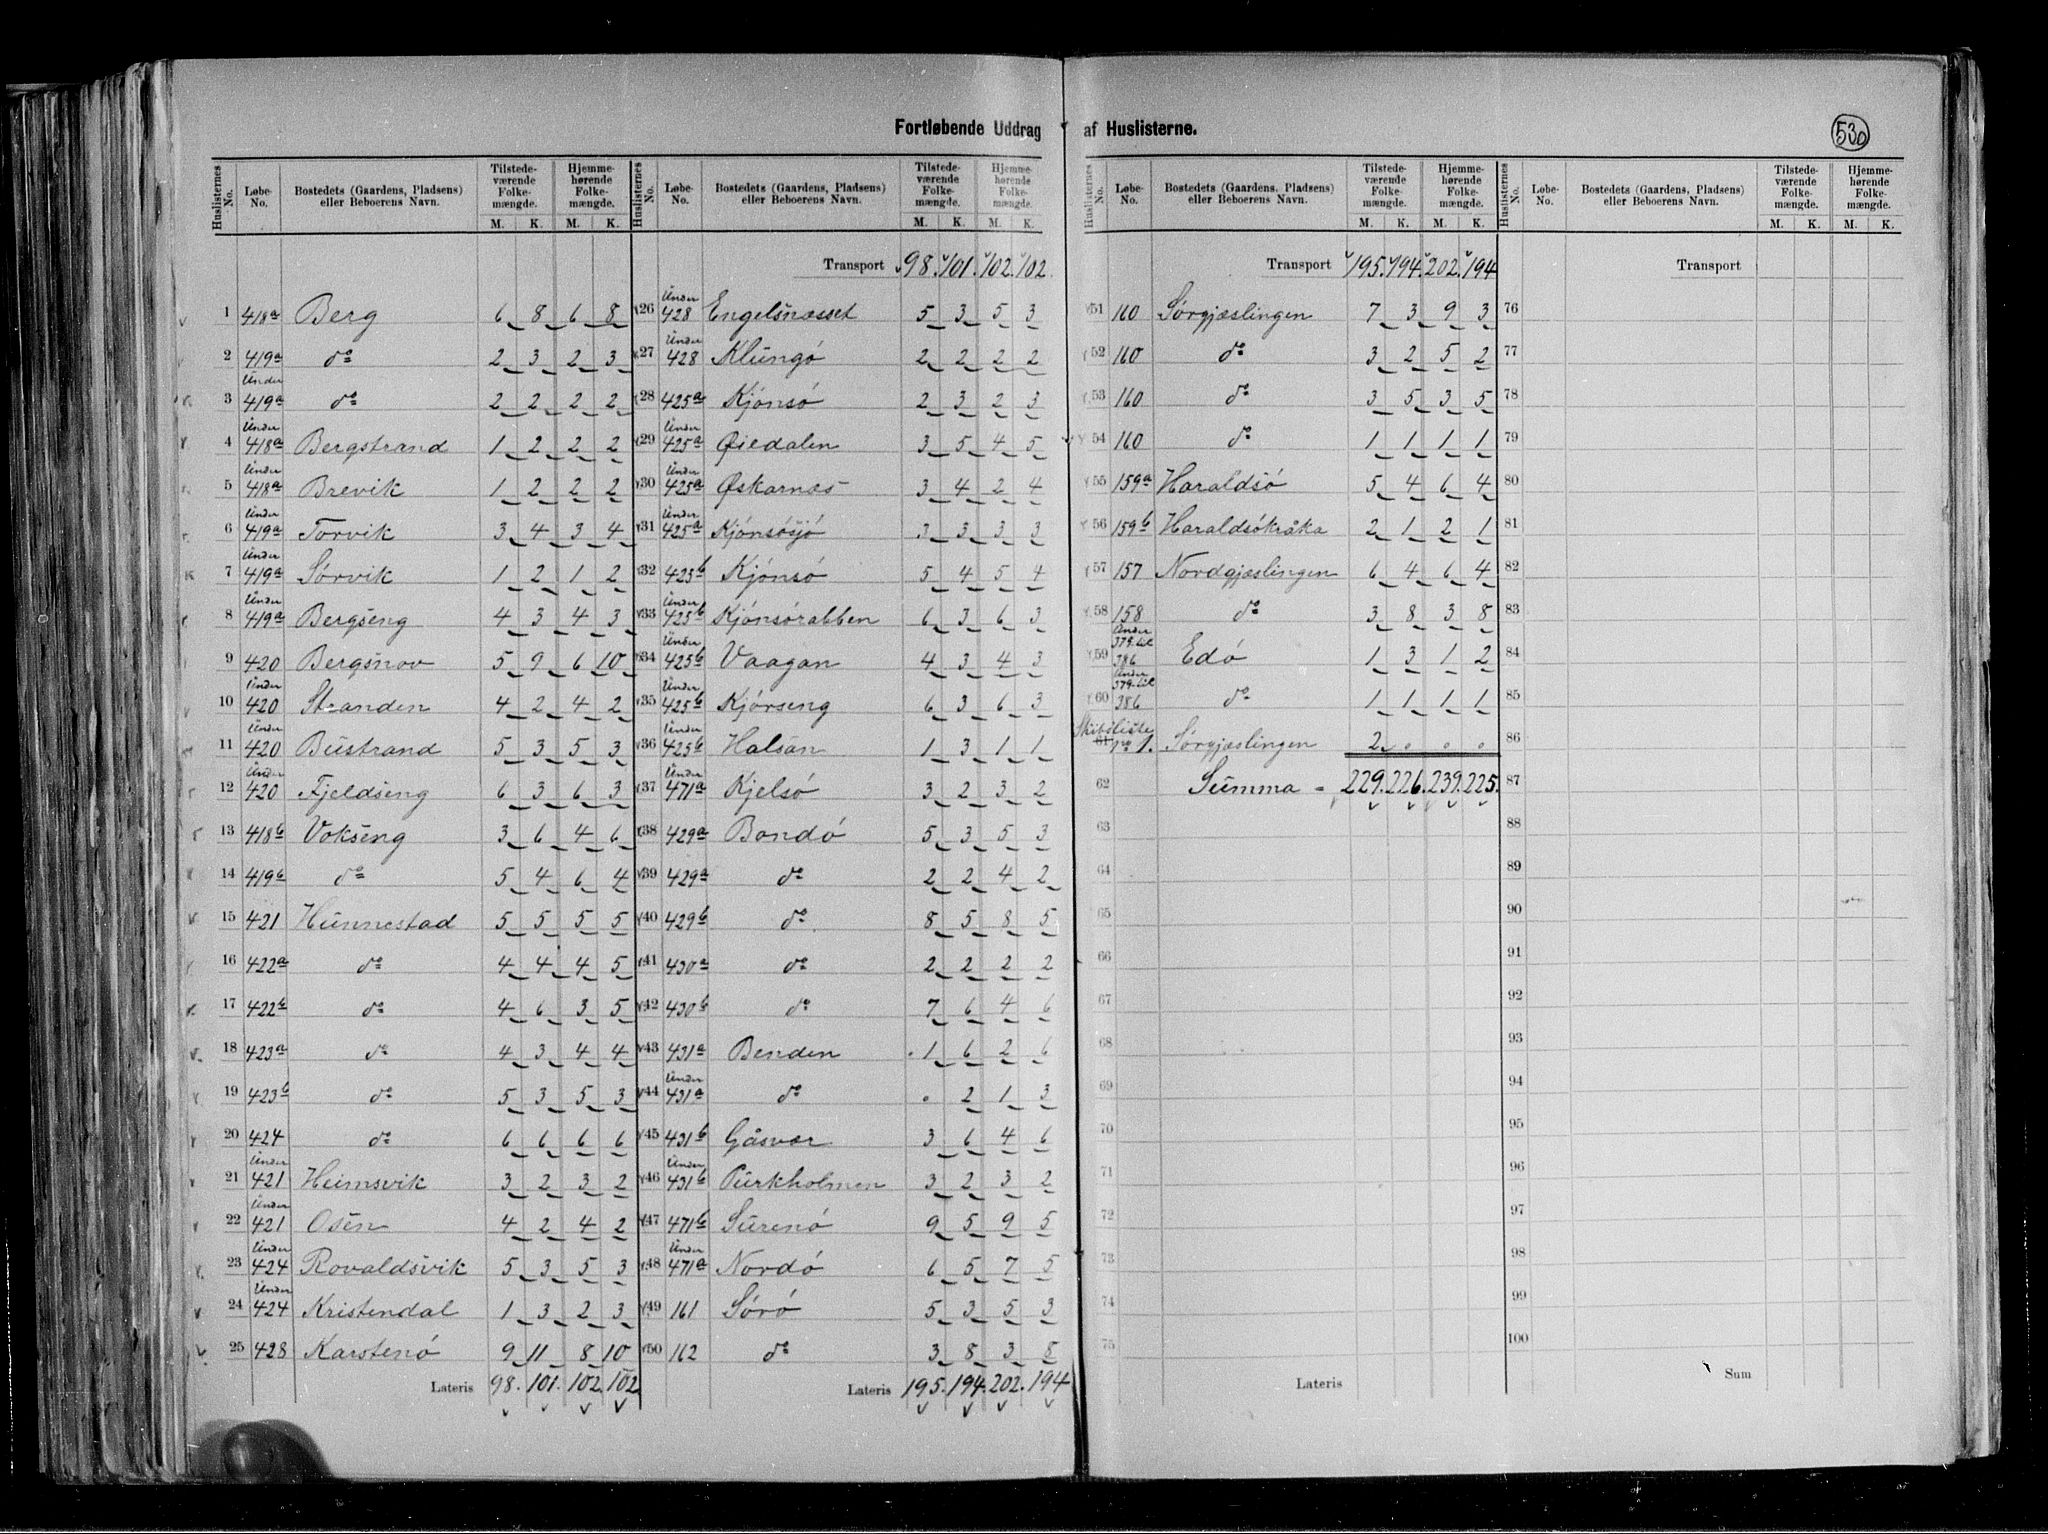 Fortløbende Uddrag af Huslisterne.
530
Huslisternes No. Løbe-No. Bostedets (Gaardens, Pladsens) eller Beboerens Navn. Tilstedeværende Folkemængde. M. K. Hjemmehørende Folkemængde. M. K.
1 418a Berg 6 8 6 8
2 419a do 2 3 2 3
3 Under 419a do 2 2 2 2
4 Under 418a Bergstrand 1 2 2 2
5 Under 418a Brevik 1 2 2 2
6 Under 419a Torvik 3 4 3 4
7 Under 419a Sørvik 1 2 1 2
8 Under 419a Bergseng 4 3 4 3
9 420 Bergsnov 5 9 6 10
10 Under 420 Stranden 4 2 4 2
11 Under 420 Bustrand 5 3 5 3
12 Under 420 Fjeldseng 6 3 6 3
13 418b Vokseng 3 6 4 6
14 419b do 5 4 6 4
15 421 Hunnestad 5 5 5 5
16 422a do 4 4 4 5
17 422b do 4 6 3 5
18 423a do 4 3 4 4
19 423b do 5 3 5 3
20 424 do 6 6 6 6
21 Under 421 Heimsvik 3 2 3 2
22 Under 421 Osen 4 2 4 2
23 Under 424 Rovaldsvik 5 3 5 3
24 Under 424 Kristendal 1 3 2 3
25 428 Karstenø 9 11 8 10
Lateris 98. 101. 102 102
Huslisternes No. Løbe-No. Bostedets (Gaardens, Pladsens) eller Beboerens Navn. Tilstedeværende Folkemængde. M. K. Hjemmehørende Folkemængde. M. K.
Transport 98. 101. 102. 102.
26 Under 428 Engelsnæsset 5 3 5 3
27 Under 428 Klungø 2 2 2 2
28 425a Kjønsø 2 3 2 3
29 Under 425a Øiedalen 3 5 4 5
30 Under 425a Øskarnæs 3 4 2 4
31 Under 425a Kjønsøsjø 3 3 3 3
32 425b Kjønsø 5 4 5 4
33 Under 425b Kjønsørabben 6 3 6 3
34 Under 425b Vaagan 4 3 4 3
35 Under 425b Kjørseng 6 3 6 3
36 Under 425b Halsan 1 3 1 1
37 Under 471a Kjelsø 3 2 3 2
38 429a Bondø 5 3 5 3
39 429a do 2 2 4 2
40 429b do 8 5 8 5
41 430a do 2 2 2 2
42 430b do 7 6 4 6
43 431a Benden 1 6 2 6
44 Under 431a do . 2 1 3
45 431b Gåsvær 3 6 4 6
46 Under 431b Purkholmen 3 2 3 2
47 471b Surenø 9 5 9 5
48 Under 471a Nordø 6 5 7 5
49 161 Sørø 5 3 5 3
50 162 do 3 8 3 8
Lateris 195. 194. 202. 194
Huslisternes No. Løbe-No. Bostedets (Gaardens, Pladsens) eller Beboerens Navn. Tilstedeværende Folkemængde. M. K. Hjemmehørende Folkemængde. M. K.
Transport 195. 194. 202. 194
51 160 Sørgjæslingen 7 3 9 3
52 160 do 3 2 5 2
53 160 do 3 5 3 5
54 160 do 1 1 1 1
55 159a Haraldsø 5 4 6 4
56 159b Haraldsøkråka 2 1 2 1
57 157 Nordgjæslingen 6 4 6 4
58 158 do 3 8 3 8
59 Under 379 til 386 Edø 1 3 1 2
60 Under 379 til 386 do 1 1 1 1
61 Skibsliste no 1. Sørgjæslingen 2 . . .
62 Summa = 229. 226. 239. 225.
63
64
65
66
67
68
69
70
71
72
73
74
75
Lateris
Huslisternes No. Løbe-No. Bostedets (Gaardens, Pladsens) eller Beboerens Navn. Tilstedeværende Folkemængde. M. K. Hjemmehørende Folkemængde. M. K.
Transport
76
77
78
79
80
81
82
83
84
85
86
87
88
89
90
91
92
93
94
95
96
97
98
99
100
Sum